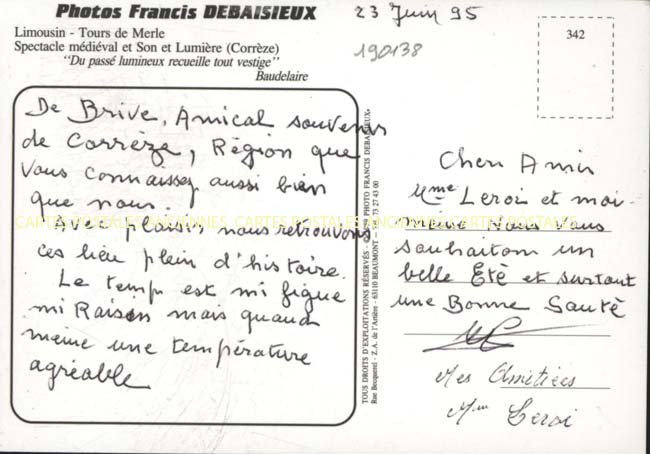 Photos Francis DEBAISIEUX
Limousin - Tours de Merle
Spectacle médiéval et Son et Lumière (Corrèze)
"Du passé lumineux recueille tout vestige"
Baudelaire
23 Juin 95
190138
342
De Brive, Amical souvenir
de Corrèze, Région que
vous connaissez aussi bien
que nous.
Avec plaisir nous retrouvons
ces lieu plein d'histoire.
Le temps est mi figue
mi Raisin mais quand
même une température
agréable
TOUS DROITS D'EXPLOITATIONS RÉSERVÉS - PHOTO FRANCIS DEBAISIEUX
Rue Becquerel - Z.A. de l'Artière - 63110 BEAUMONT - Tél. 73 27 43 00
Chers Amis
Mme Leroi et moi-
même Nous vous
souhaitons un
belle Eté et surtout
une Bonne Santé
Mes Amitiées
Mme Leroi
CARTES POSTALES ANCIENNES CARTES POSTALES